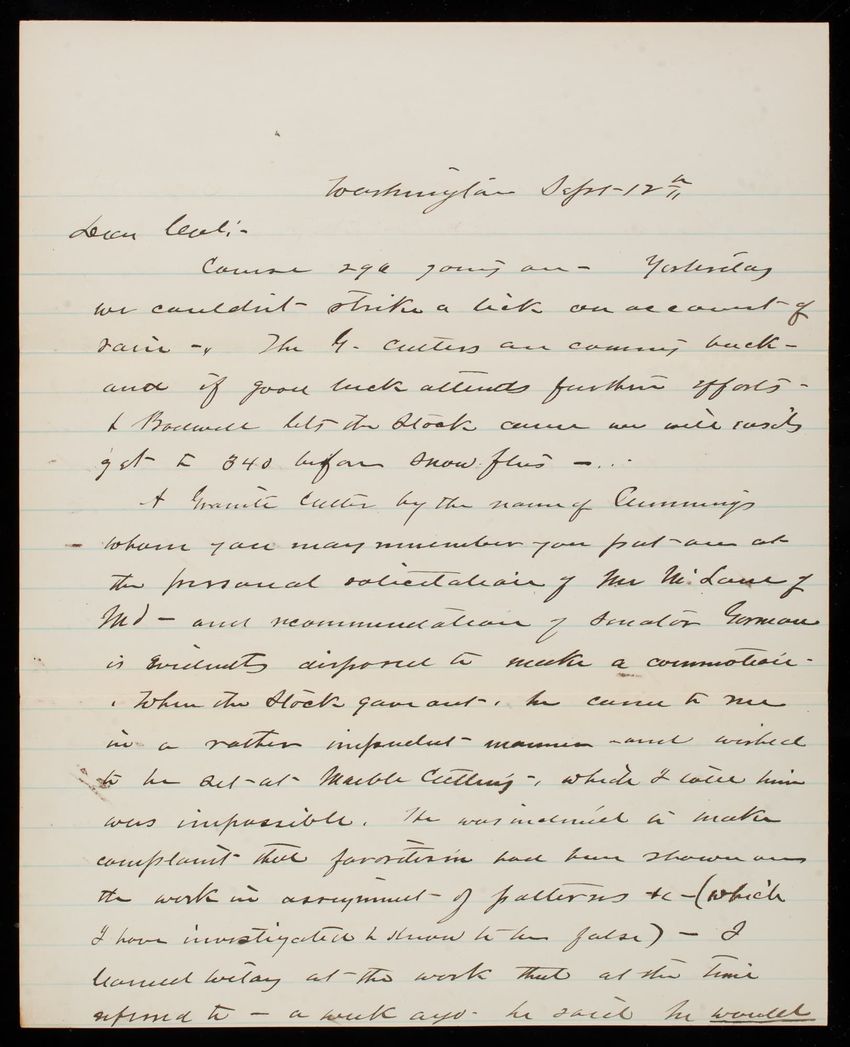 Washington Sept-12th
Dear Col:-
Course 290 going on - Yesterday
we couldn't strike a lick on account of
rain -. The G. Cutters are coming back -
and if good luck attends further efforts -
& Bodwell lets the Stock come we will easily
get to 340 before snow flies - ...
A Granite Cutter by the name of Cummings
whom you may remember you put on at
the personal solicitation of Mr McLane of
Md - and recommendation of Senator Gorman
is evidently disposed to make a commotion -
. When the Stock gave out, he came to me
in a rather impudent manner and wished
to be set at Marble Cutting -, which I told him
was impossible. He was inclined to make
complaint that favoritism had been shown on
the work in assignment of patterns &c - (which
I have investigated & know to be false) - I
learned today at the work that at the time
referred to - a week ago - he said he would